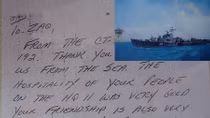 To. ZAO,
FROM THE CT.
192. THANK YOU
US FROM THE SEA. THE
HOSPITALITY OF YOUR PEOPLE
ON THE HQ 11 WAS VERY GOOD
YOUR FRIENDSHIP IS ALSO VERY